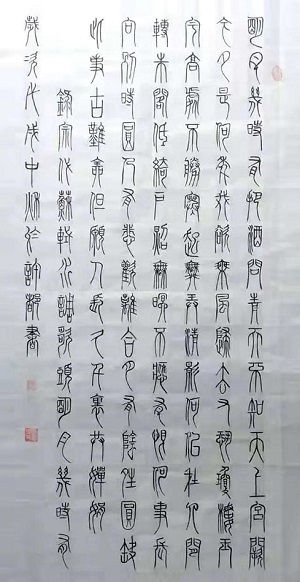 明月幾時有把酒問青天不知天上宮闕
今夕是何年我欲乘風歸去又恐瓊樓玉
宇高處不勝寒起舞弄清影何似在人間
轉朱閣低綺戶照無眠不應有恨何事長
向別時圓人有悲歡離合月有陰晴圓缺
此事古難全但願人長久千里共嬋娟
錄宋代蘇軾水調歌頭明月幾時有
歲次戊戌中秋於許都書